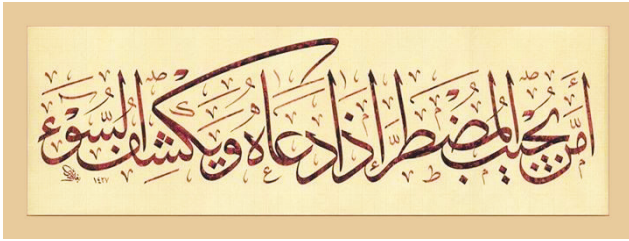 أمن يجيب المضطر إذا دعاه ويكشف السوء
١٤٢٧